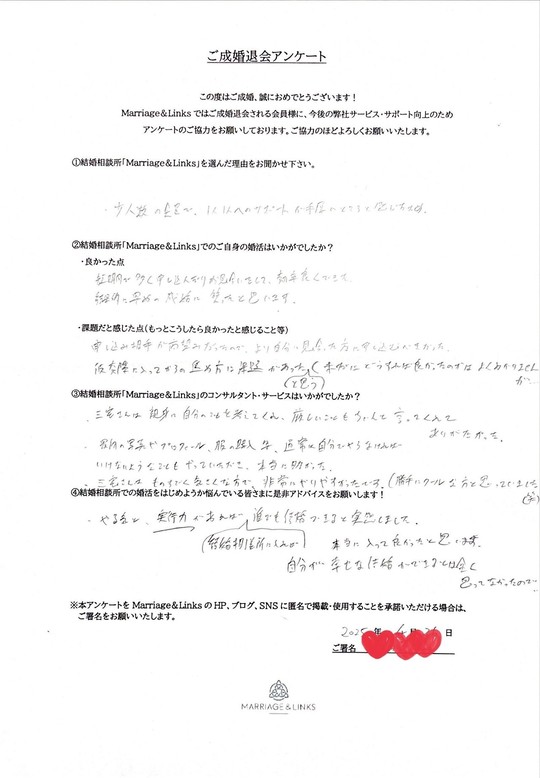 ご成婚退会アンケート
この度はご成婚、誠におめでとうございます！
Marriage＆Links ではご成婚退会される会員様に、今後の弊社サービス・サポート向上のため
アンケートのご協力をお願いしております。ご協力のほどよろしくお願いいたします。
①結婚相談所「Marriage＆Links」を選んだ理由をお聞かせ下さい。
・少人数の会員で、1人1人へのサポートが手厚いところと思ったため。
②結婚相談所「Marriage＆Links」でのご自身の婚活はいかがでしたか？
・良かった点
短期間で多く申し込んだりお見合いをして、効率良くできて
結果的に早めの成婚に至ったと思います。
・課題だと感じた点（もっとこうしたら良かったと感じること等）
申し込み相手が高望みだったので、より自分に見合った方に申し込むべきだった。
仮交際に入ってからの進め方に課題があった（未だにどうすれば良かったのかはよくわかりません
が…
（と思う）
③結婚相談所「Marriage＆Links」のコンサルタント・サービスはいかがでしたか？
・三宅さんは親身に自分のことを考えてくれ、厳しいこともちゃんと言ってくれて
ありがたかった。
・客用の写真やプロフィール、服の購入等、通常は自分でやらなければ
いけないようなこともやっていただき、本当に助かった。
・三宅さんはものすごく気さくな方で、非常にやりやすかったです。（勝手にクールな方と思っていました
（笑）
④結婚相談所での婚活をはじめようか悩んでいる皆さまに是非アドバイスをお願いします！
・やる気と、実行力があれば誰でも結婚できると実感しました。
（結婚相談所に入れば） 本当に入って良かったと思います。
自分が幸せな結婚ができるとは全く
思ってなかったので…
※本アンケートを Marriage＆Links の HP、ブログ、SNS に匿名で掲載・使用することを承諾いただける場合は、
ご署名をお願いいたします。
2025 年 4 月 26 日
ご署名
MARRIAGE＆LINKS